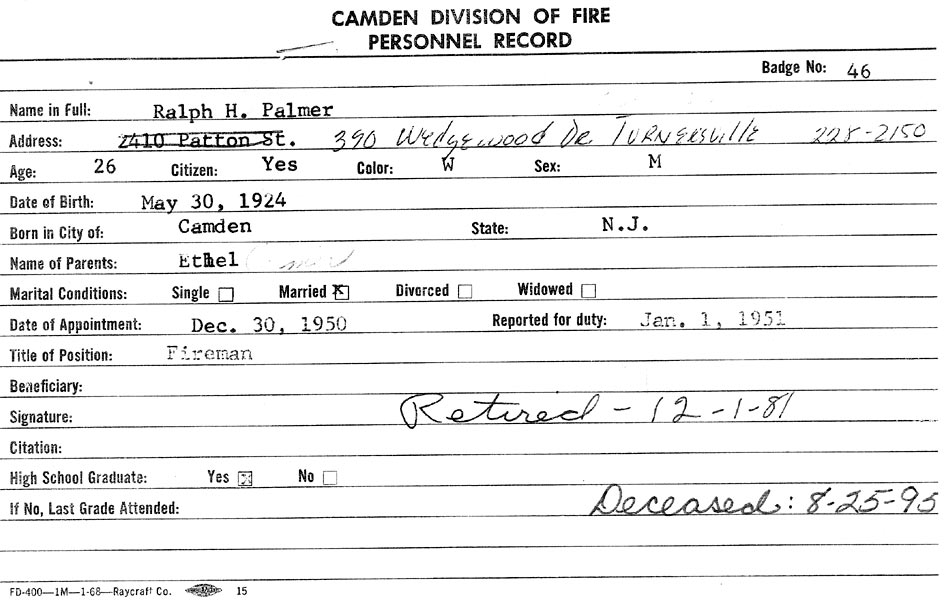 CAMDEN DIVISION OF FIRE
PERSONNEL RECORD
Badge No: 46
Name in Full: Ralph H. Palmer
Address: 2410 Patton St. 390 Wedgewood Dr Turnersville 228-2150
Age: 26 Citizen: Yes Color: W Sex: M
Date of Birth: May 30, 1924
Born in City of: Camden State: N.J.
Name of Parents: Ethel
Marital Conditions: Single Married X Divorced Widowed
Date of Appointment: Dec. 30, 1950 Reported for duty: Jan. 1, 1951
Title of Position: Fireman
Beneficiary:
Signature: Retired - 12-1-81
Citation:
High School Graduate: Yes X No
If No, Last Grade Attended: Deceased: 8-25-95
FD-400—1M—1-68—Raycraft Co. 15